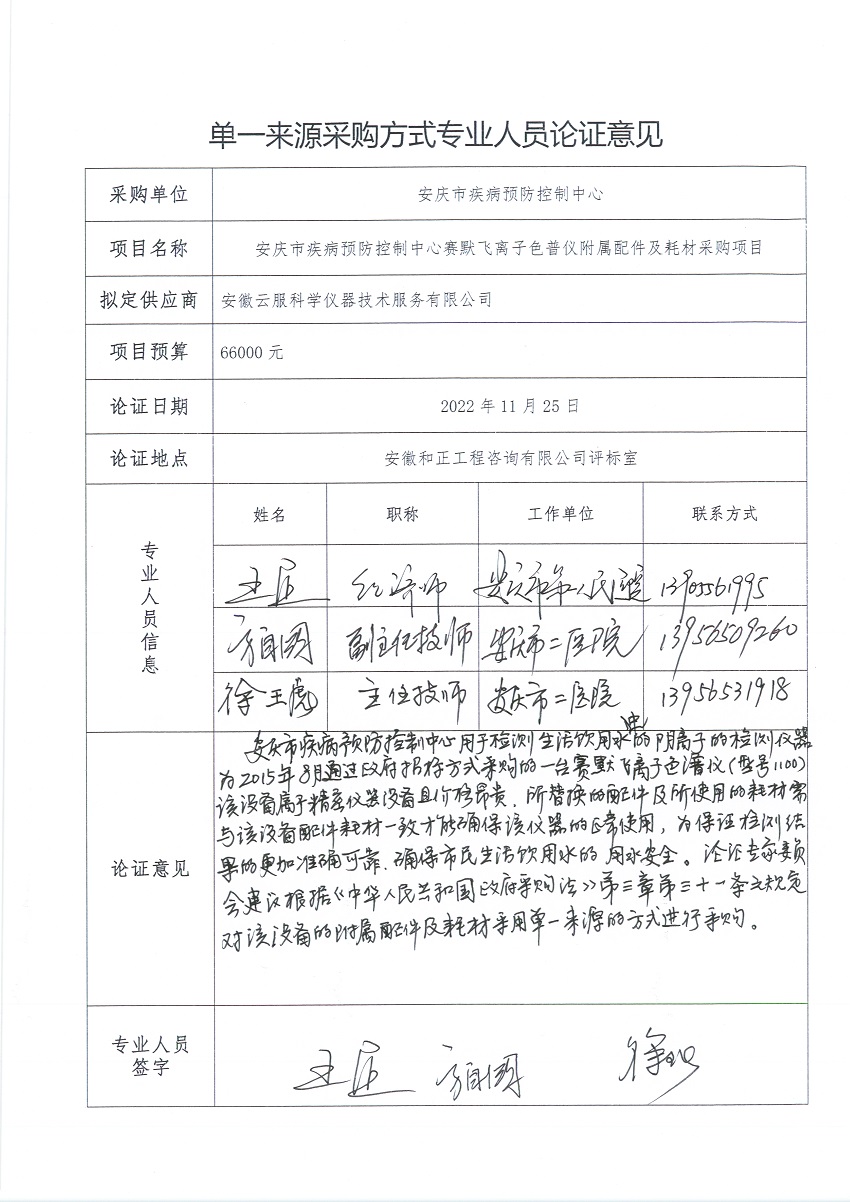 单一来源采购方式专业人员论证意见
采购单位 安庆市疾病预防控制中心
项目名称 安庆市疾病预防控制中心赛默飞离子色普仪附属配件及耗材采购项目
拟定供应商 安徽云服科学仪器技术服务有限公司
项目预算 66000 元
论证日期 2022 年 11 月 25 日
论证地点 安徽和正工程咨询有限公司评标室
专业人员信息
姓名 职称 工作单位 联系方式
经济师 安庆市第一人民医院 13905561995
副主任技师 安庆市二医院 13956509260
徐玉虎 主任技师 安庆市二医院 13956531918
论证意见
安庆市疾病预防控制中心用于检测生活饮用水中的阴离子的检测仪器
为2015年8月通过政府招标方式采购的一台赛默飞离子色谱仪(型号1100)
该设备属于精密仪器设备且价格昂贵.所替换的配件及所使用的耗材需
与该设备配件耗材一致才能确保该仪器的正常使用,为保证检测结
果的更加准确可靠.确保市民生活饮用水的用水安全。论证专家委员
会建议根据《中华人民共和国政府采购法》第三章第三十一条之规定
对该设备的附属配件及耗材采用单一来源的方式进行采购。
专业人员
签字